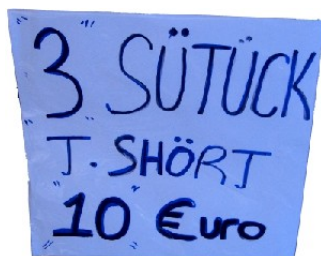 3 SÜTÜCK
T. SHÖRT
10 €uro